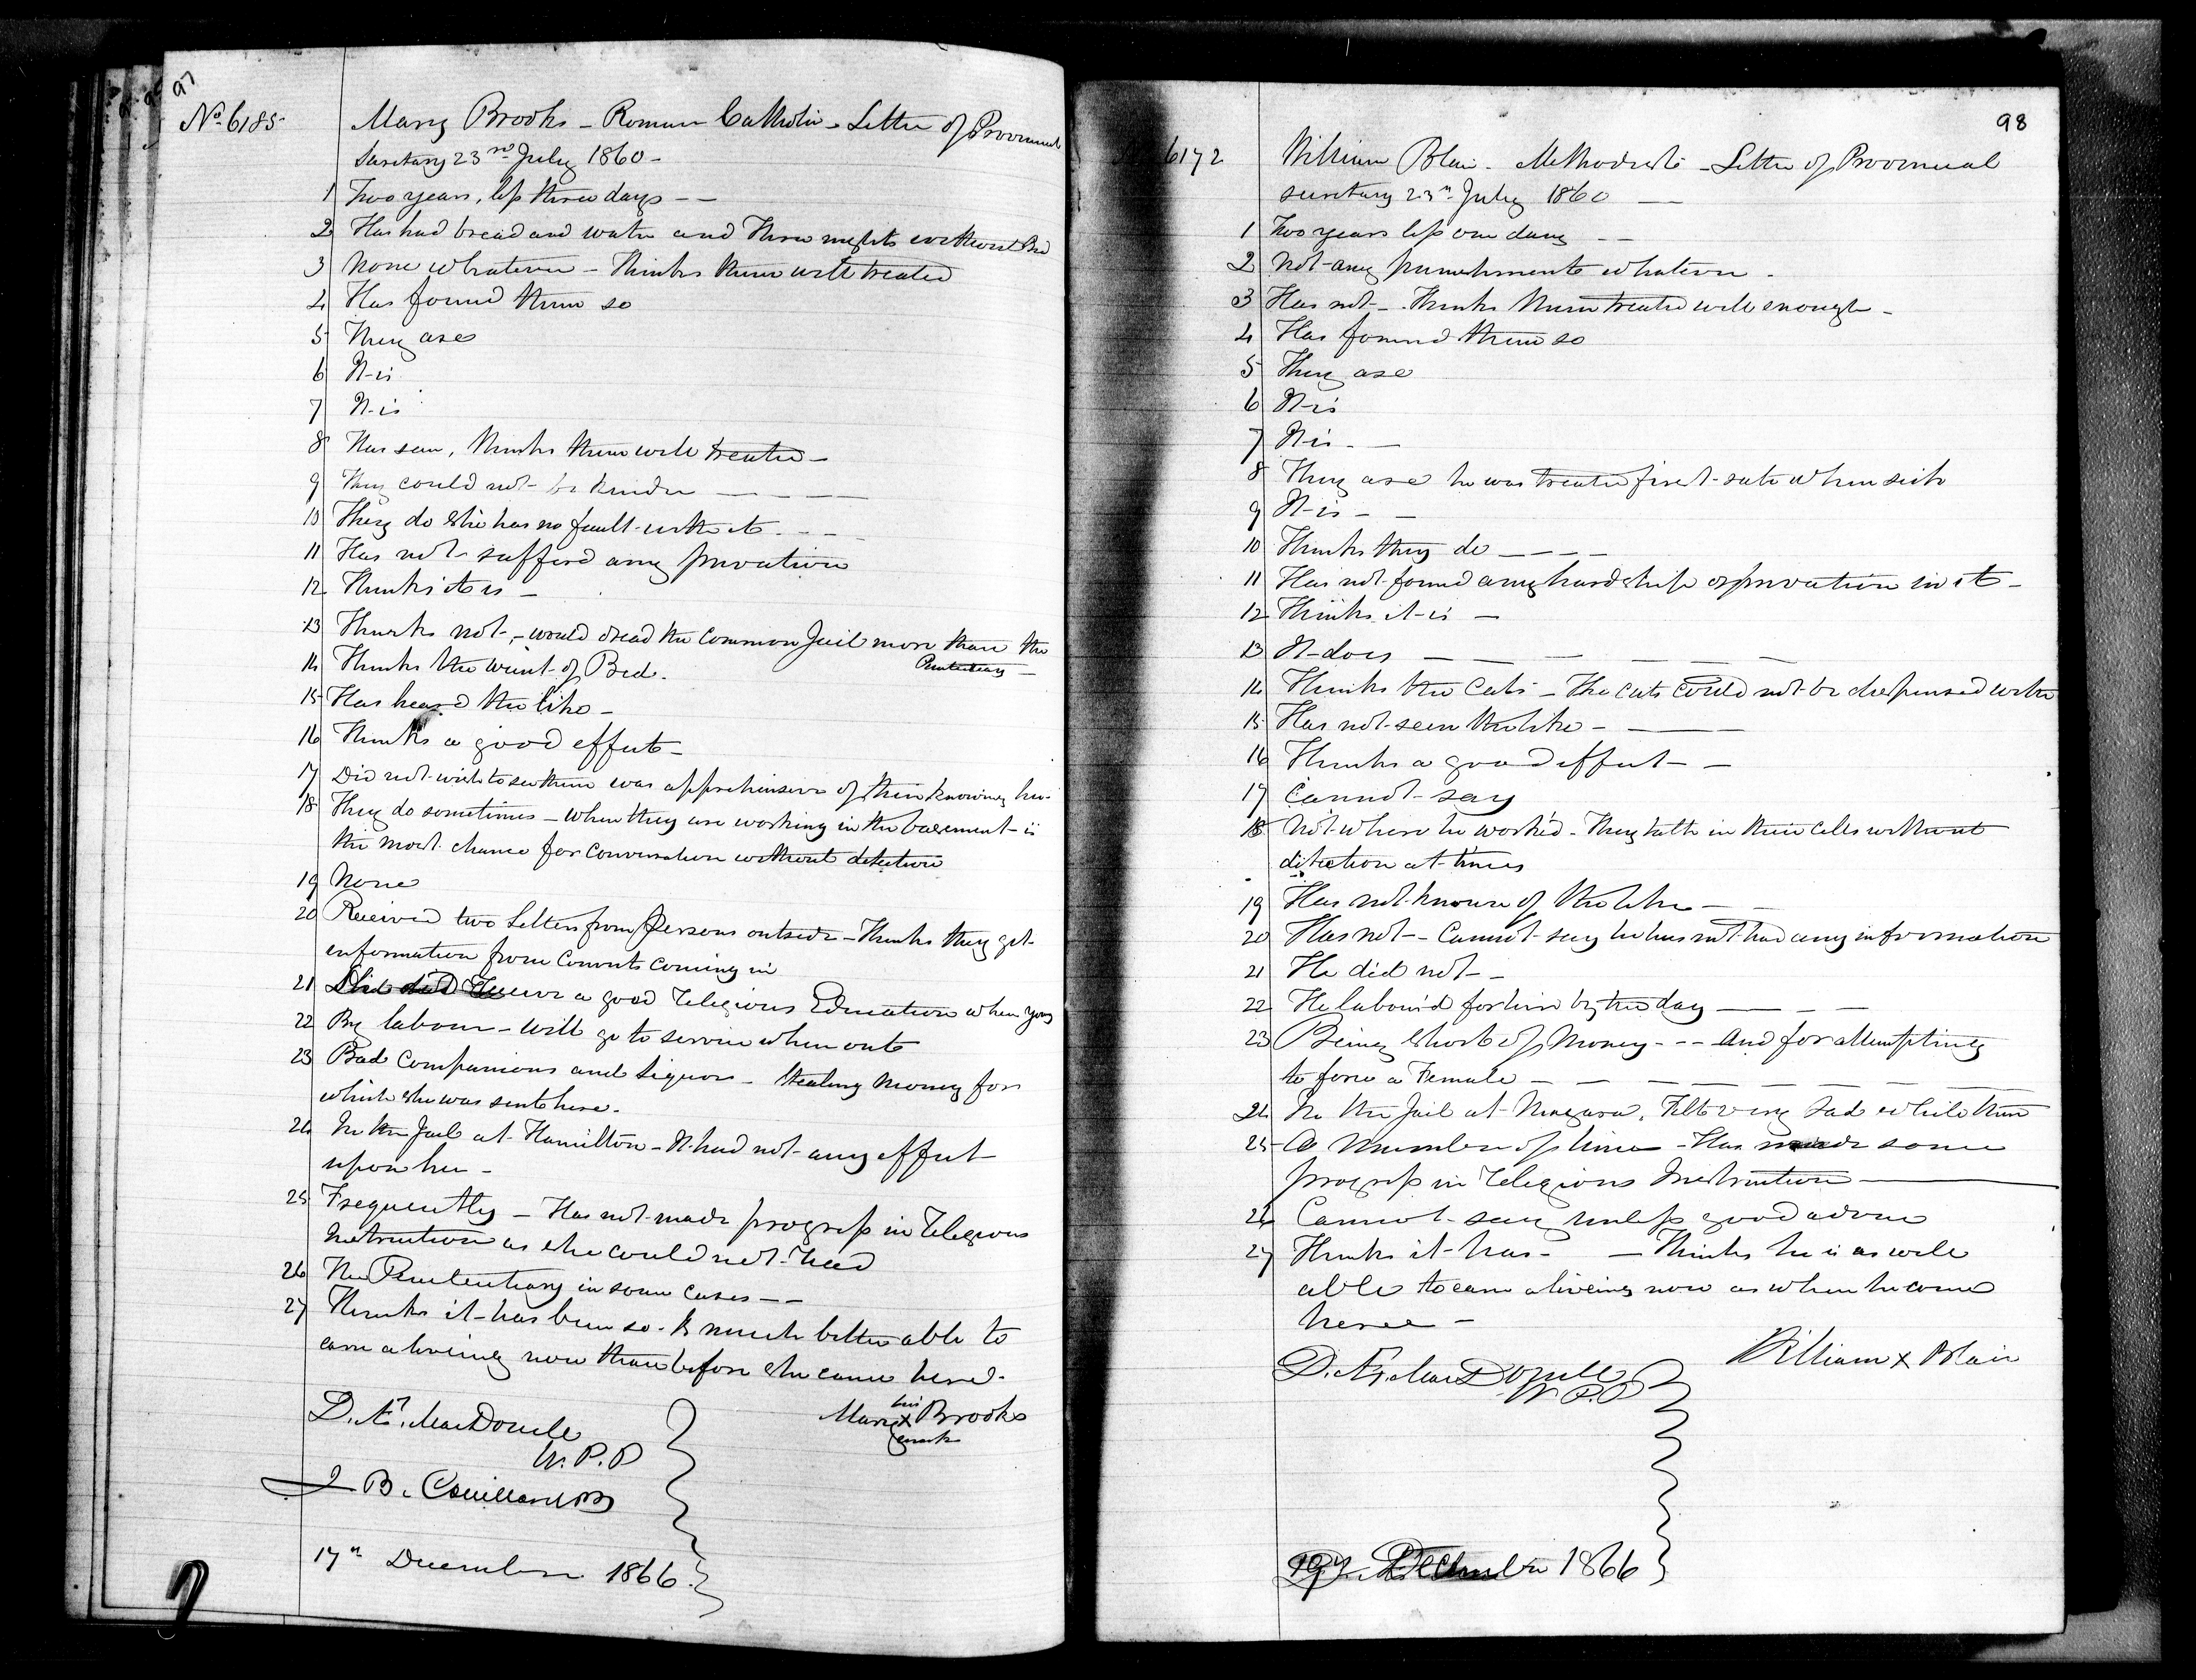 97
No. 6185 Mary Brooks - Roman Catholic - Letter of Provincial
Secretary 23rd July 1860 -
1 Two years, less three days - -
2 Has had bread and water and Three nights without Bed
3 None whatever - Thinks them well treated
4 Has found them so
5 They are
6 It is
7 It is
8 Has seen, thinks them well treated -
9 They could not be kinder - - - -
10 They do She has no fault with it - - -
11 Has not sufferd any privation
12 Thinks it is -
13 Thinks not, - would dread the Common Jail more than the
Penitentiary -
14 Thinks the want of Bed.
15 Has heard the like -
16 Thinks a good effect -
17 Did not wish to see them was apprehensive of their knowing her
18 They do sometimes - when they are working in the basement is
the most chance for conversation without detection
19 None
20 Received two Letters from Persons outside - Thinks they get
information from Convicts coming in
21 She did receive a good religious Education when young
22 By labour - will go to service when out
23 Bad Companions and Liquor - Stealing Money for
which she was sent here.
24 In the Jail at Hamilton - It had not any effect
upon her -
25 Frequently - Has not made progress in religious
Instruction as she could not read
26 The Penitentiary in some cases - -
27 Thinks it has been so. Is much better able to
earn a living now than before she came here.
D. Æ. MacDonell
W. P. P
Mary x Brooks
her
mark
17th December 1866.
98
6172 William Blair - Methodist - Letter of Provincial
secretary 23rd July 1860 -
1 Two years less one day - -
2 Not any punishments whatever.
3 Has not - Thinks them treated well enough -
4 Has found them so
5 They are
6 It is
7 It is - -
8 They are he was treated first rate when sick
9 It is - -
10 Thinks they do - - - -
11 Has not found any hardship or privation in it -
12 Thinks it is -
13 It does - - - - -
14 Thinks the Cats - The Cats could not be dispensed with
15 Has not seen the like - -
16 Thinks a good effect - -
17 Cannot say
18 Not where he work'd - They talk in their Cells without
detection at times
19 Has not known of the like - -
20 Has not - Cannot say he has not had any information
21 He did not - -
22 He labour'd for hire by the day - - -
23 Being short of Money - - And for attempting
to force a Female - - - - - - -
24 In the Jail at Niagara. Felt very sad while there
25 A number of times - Has made some
progress in religious Instruction -
26 Cannot say unless good advice
27 Thinks it has - - Thinks he is as well
able to earn a liveing now as when he came
here -
D. Æ. MacDonell
W P. P
William x Blair
December 1866